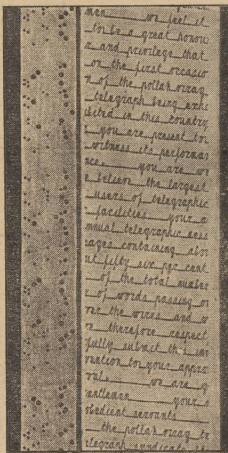 men____we feel it
to be a great honou
r and privilege that
on the first occasio
n of the pollak virag
telegraph being exhi
bited in this country
you are present to
witness its performan
ce____you are we
believe the largest
users of telegraphic
facilities____your a
nnual telegraphic mess
ages containing abo
ut fifty six per cent
of the total number
of words passing o
ver the wires and w
e therefore respect
fully submit this inv
ention to your appro
val____we are g
entlemen____your o
bedient servants____
the pollak virag te
legraph syndicate